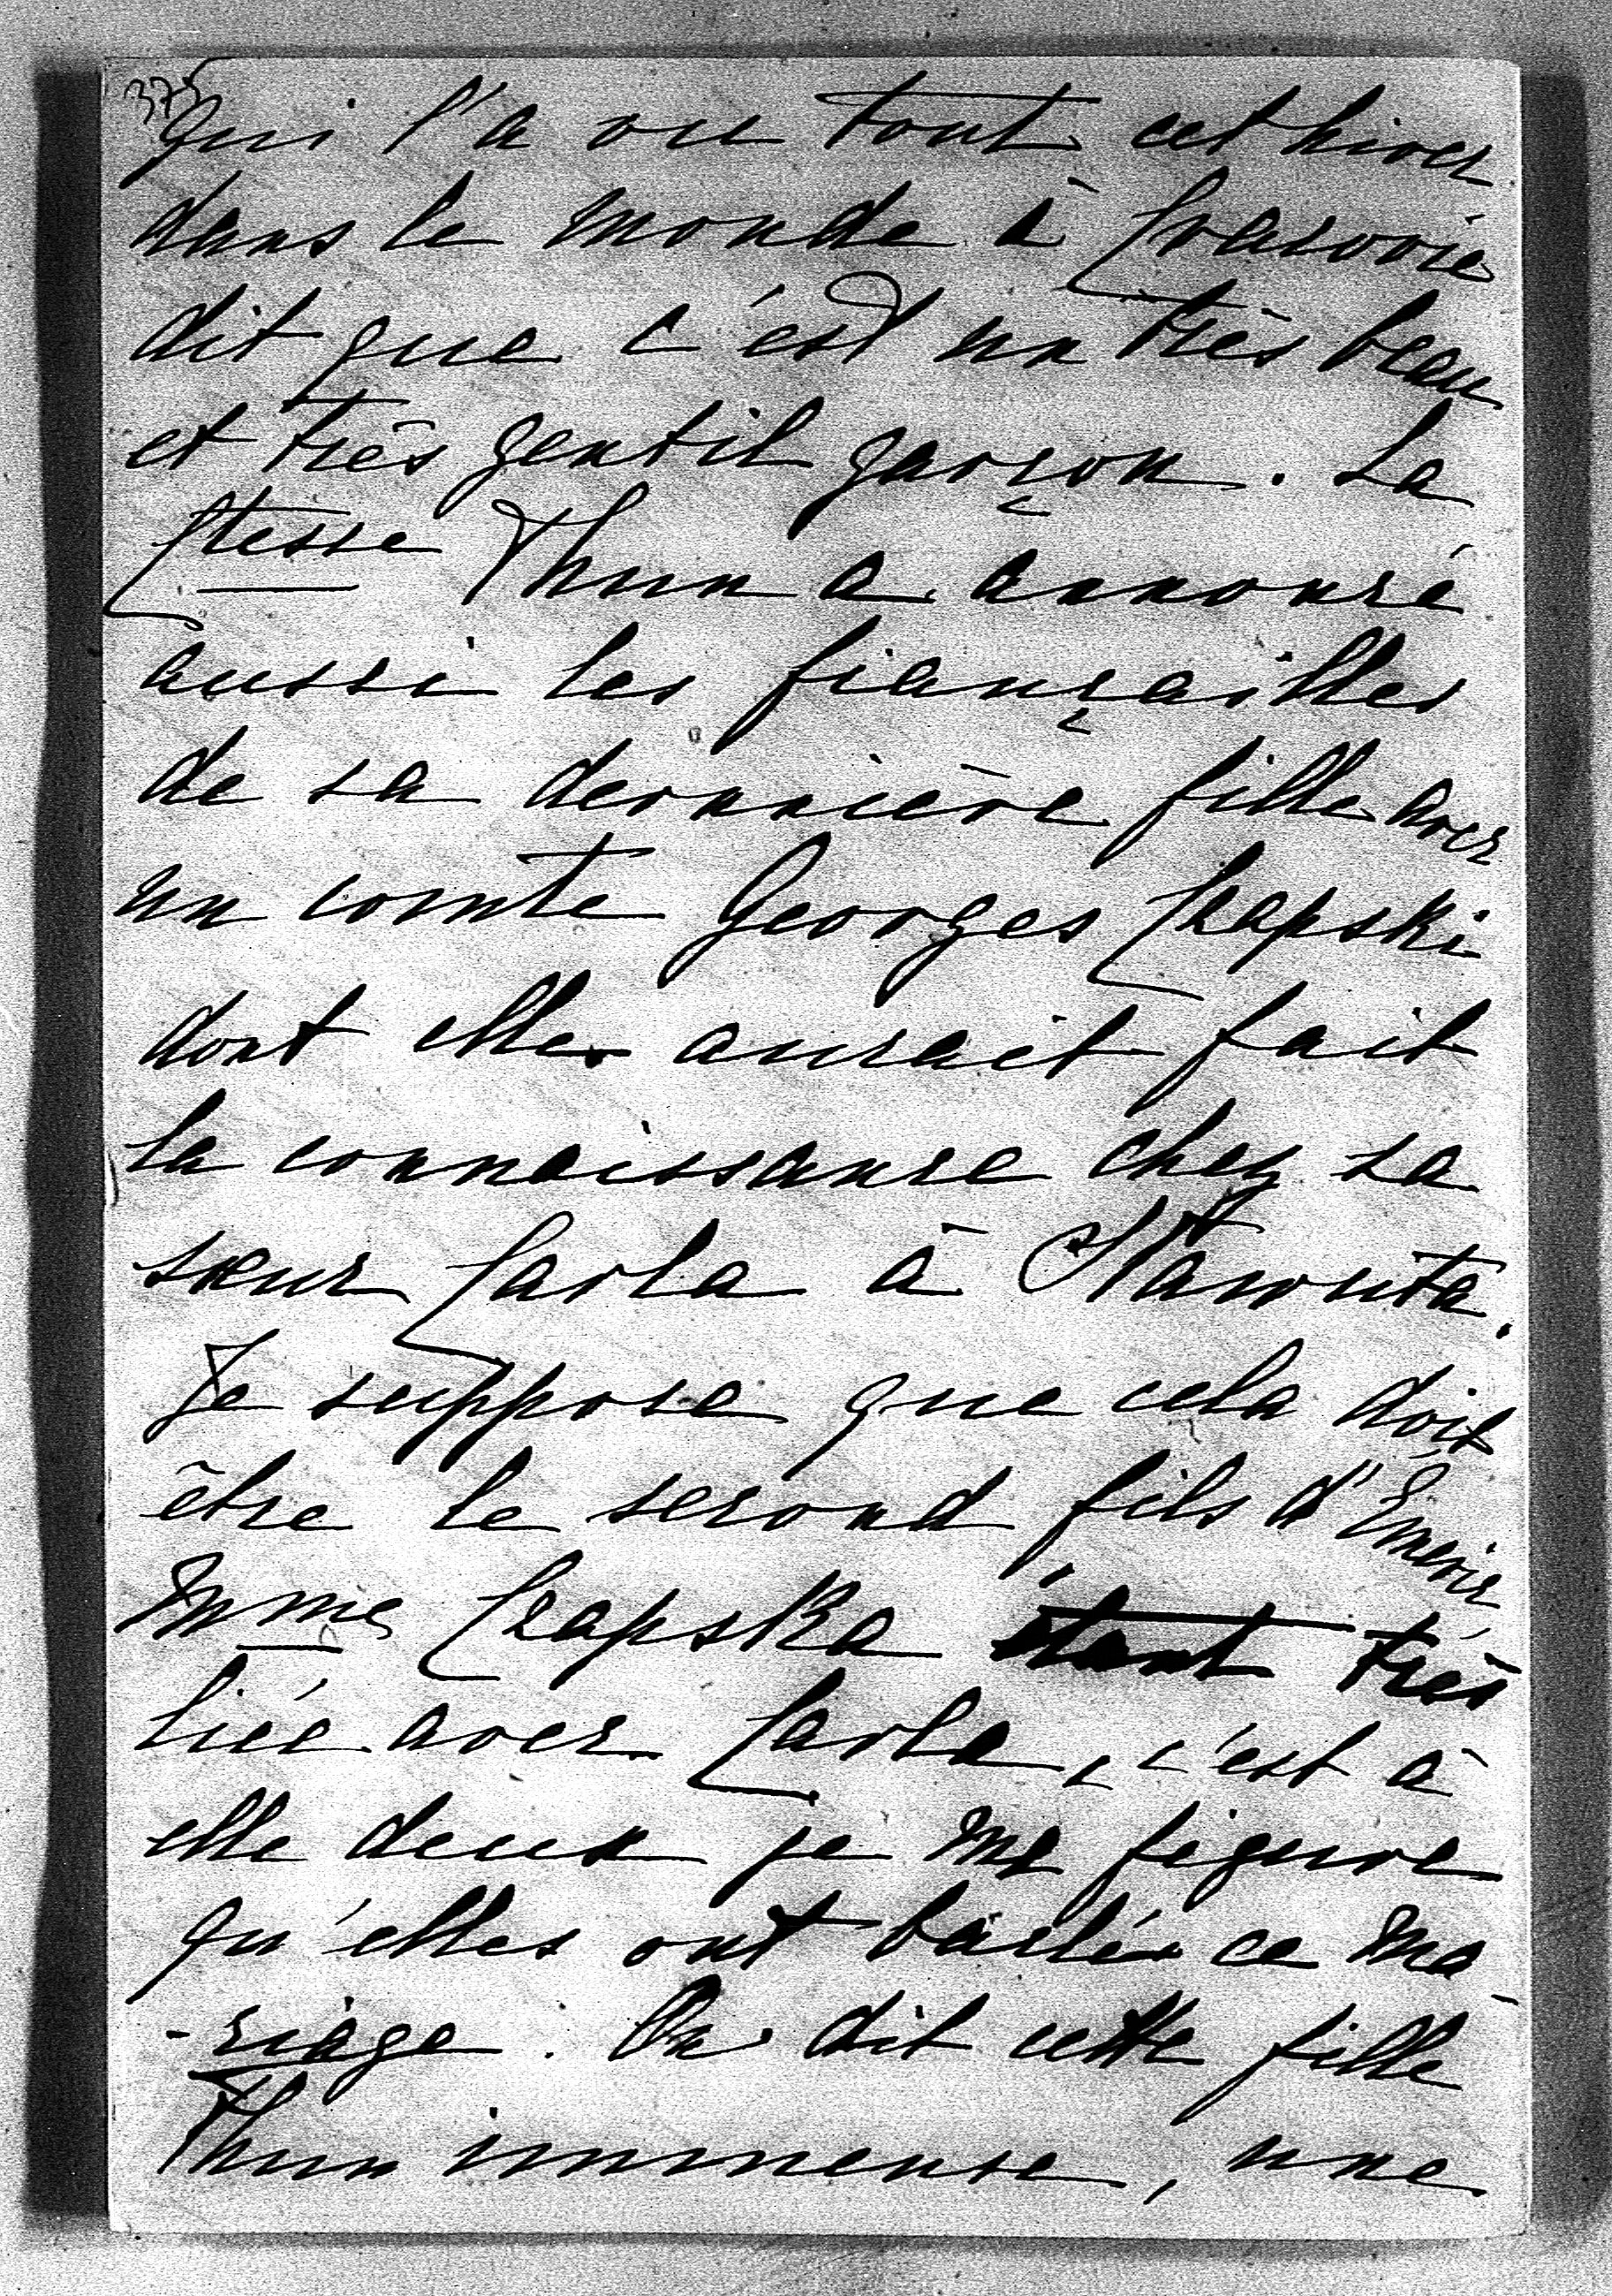 375
qui l'a vu tout cet hiver
dans le monde à Cracovie
dit que c'est un très beau
et très gentil garçon. La
Ctesse Thun a annoncé
aussi les fiançailles
de sa dernnière fille avec
un comte Georges Czapski
dont elle aurait fait
la connaissance chez sa
sœur Carla à Slawuta.
Je suppose que cela doit
être le second fils d'Emeric
Mme Czapska étant très
liée avec Carla, c'est à
elle deux je me figure
qu'elles ont baclée ce ma
-riage. On dit cette fille
Thun immense, une